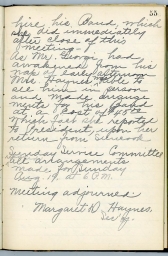 55
hire his Band, which
she did immediately
after close of this
meeting.
As Mr. Georgi had
awakened from his
nap of early afternoon
Mrs. Haynes able to
see him in person
and made arrange-
ments for his Band
at a cost of
which fact she reported
to President upon her
return from
Sunday Service Committee
all arrangements
made for Sunday
Aug. 19. at 6 P.M.
Meeting adjourned
Margaret D. Haynes,
Sec'y.